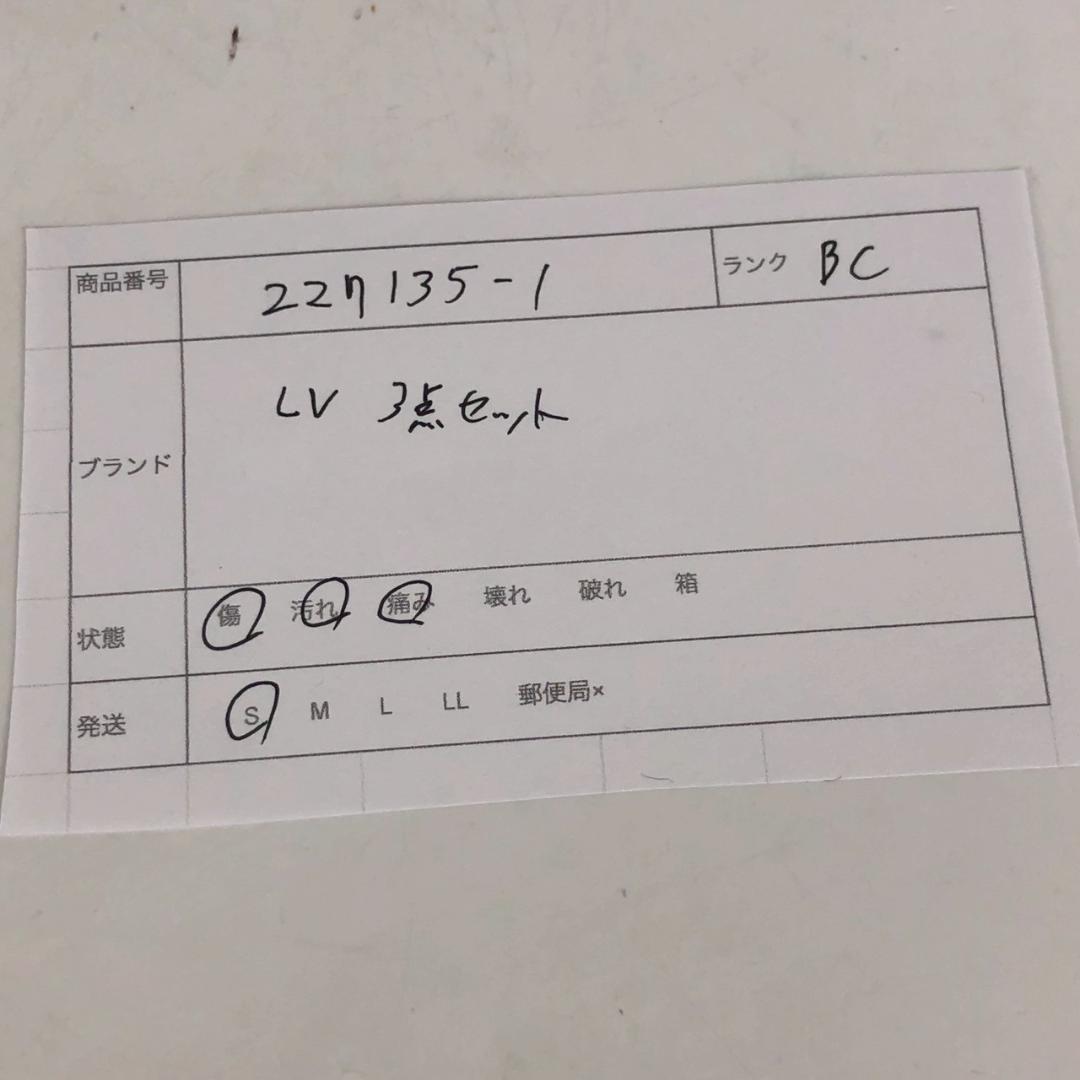 商品番号 227135-1 ランク BC
ブランド LV 3点セット
状態 傷 汚れ 痛み 壊れ 破れ 箱
発送 S M L LL 郵便局×